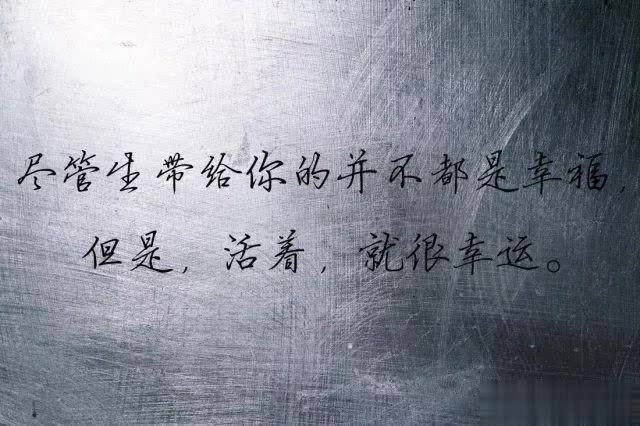 尽管生带给你的并不都是幸福，
但是，活着，就很幸运。